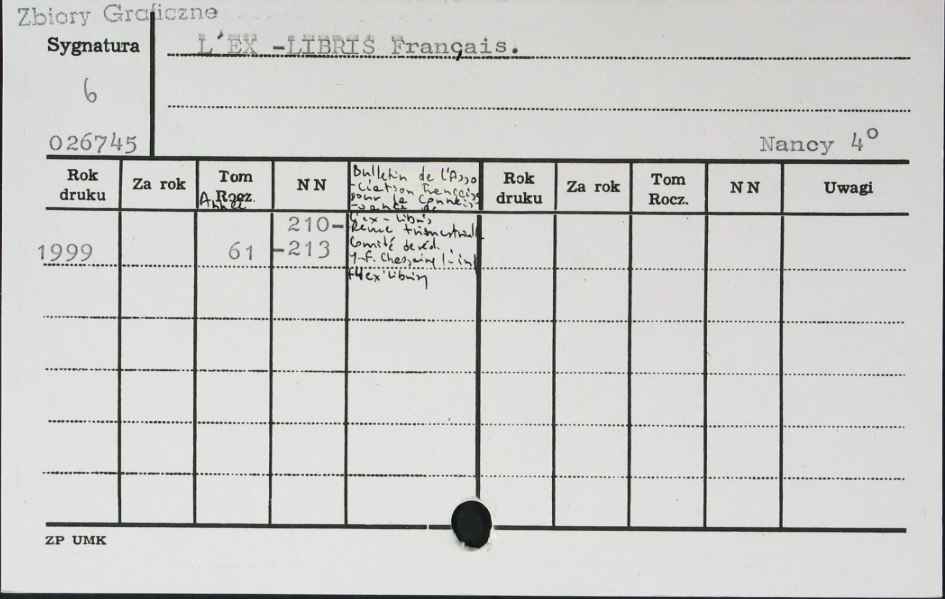 Zbiory Graficzne
Sygnatura
L'EX-LIBRIS Français.
6
026745
Nancy 4°
Rok druku
Za rok
Tom Rocz.
Année
NN
Bulletin de l'Asso
-ciation française
pour la connais
-sance de
l'ex-libris
Revue trimestrielle
Comité de réd.
J-F. Chassaing
Rok druku
Za rok
Tom Rocz.
NN
Uwagi
1999
61
210-
-213
ZP UMK